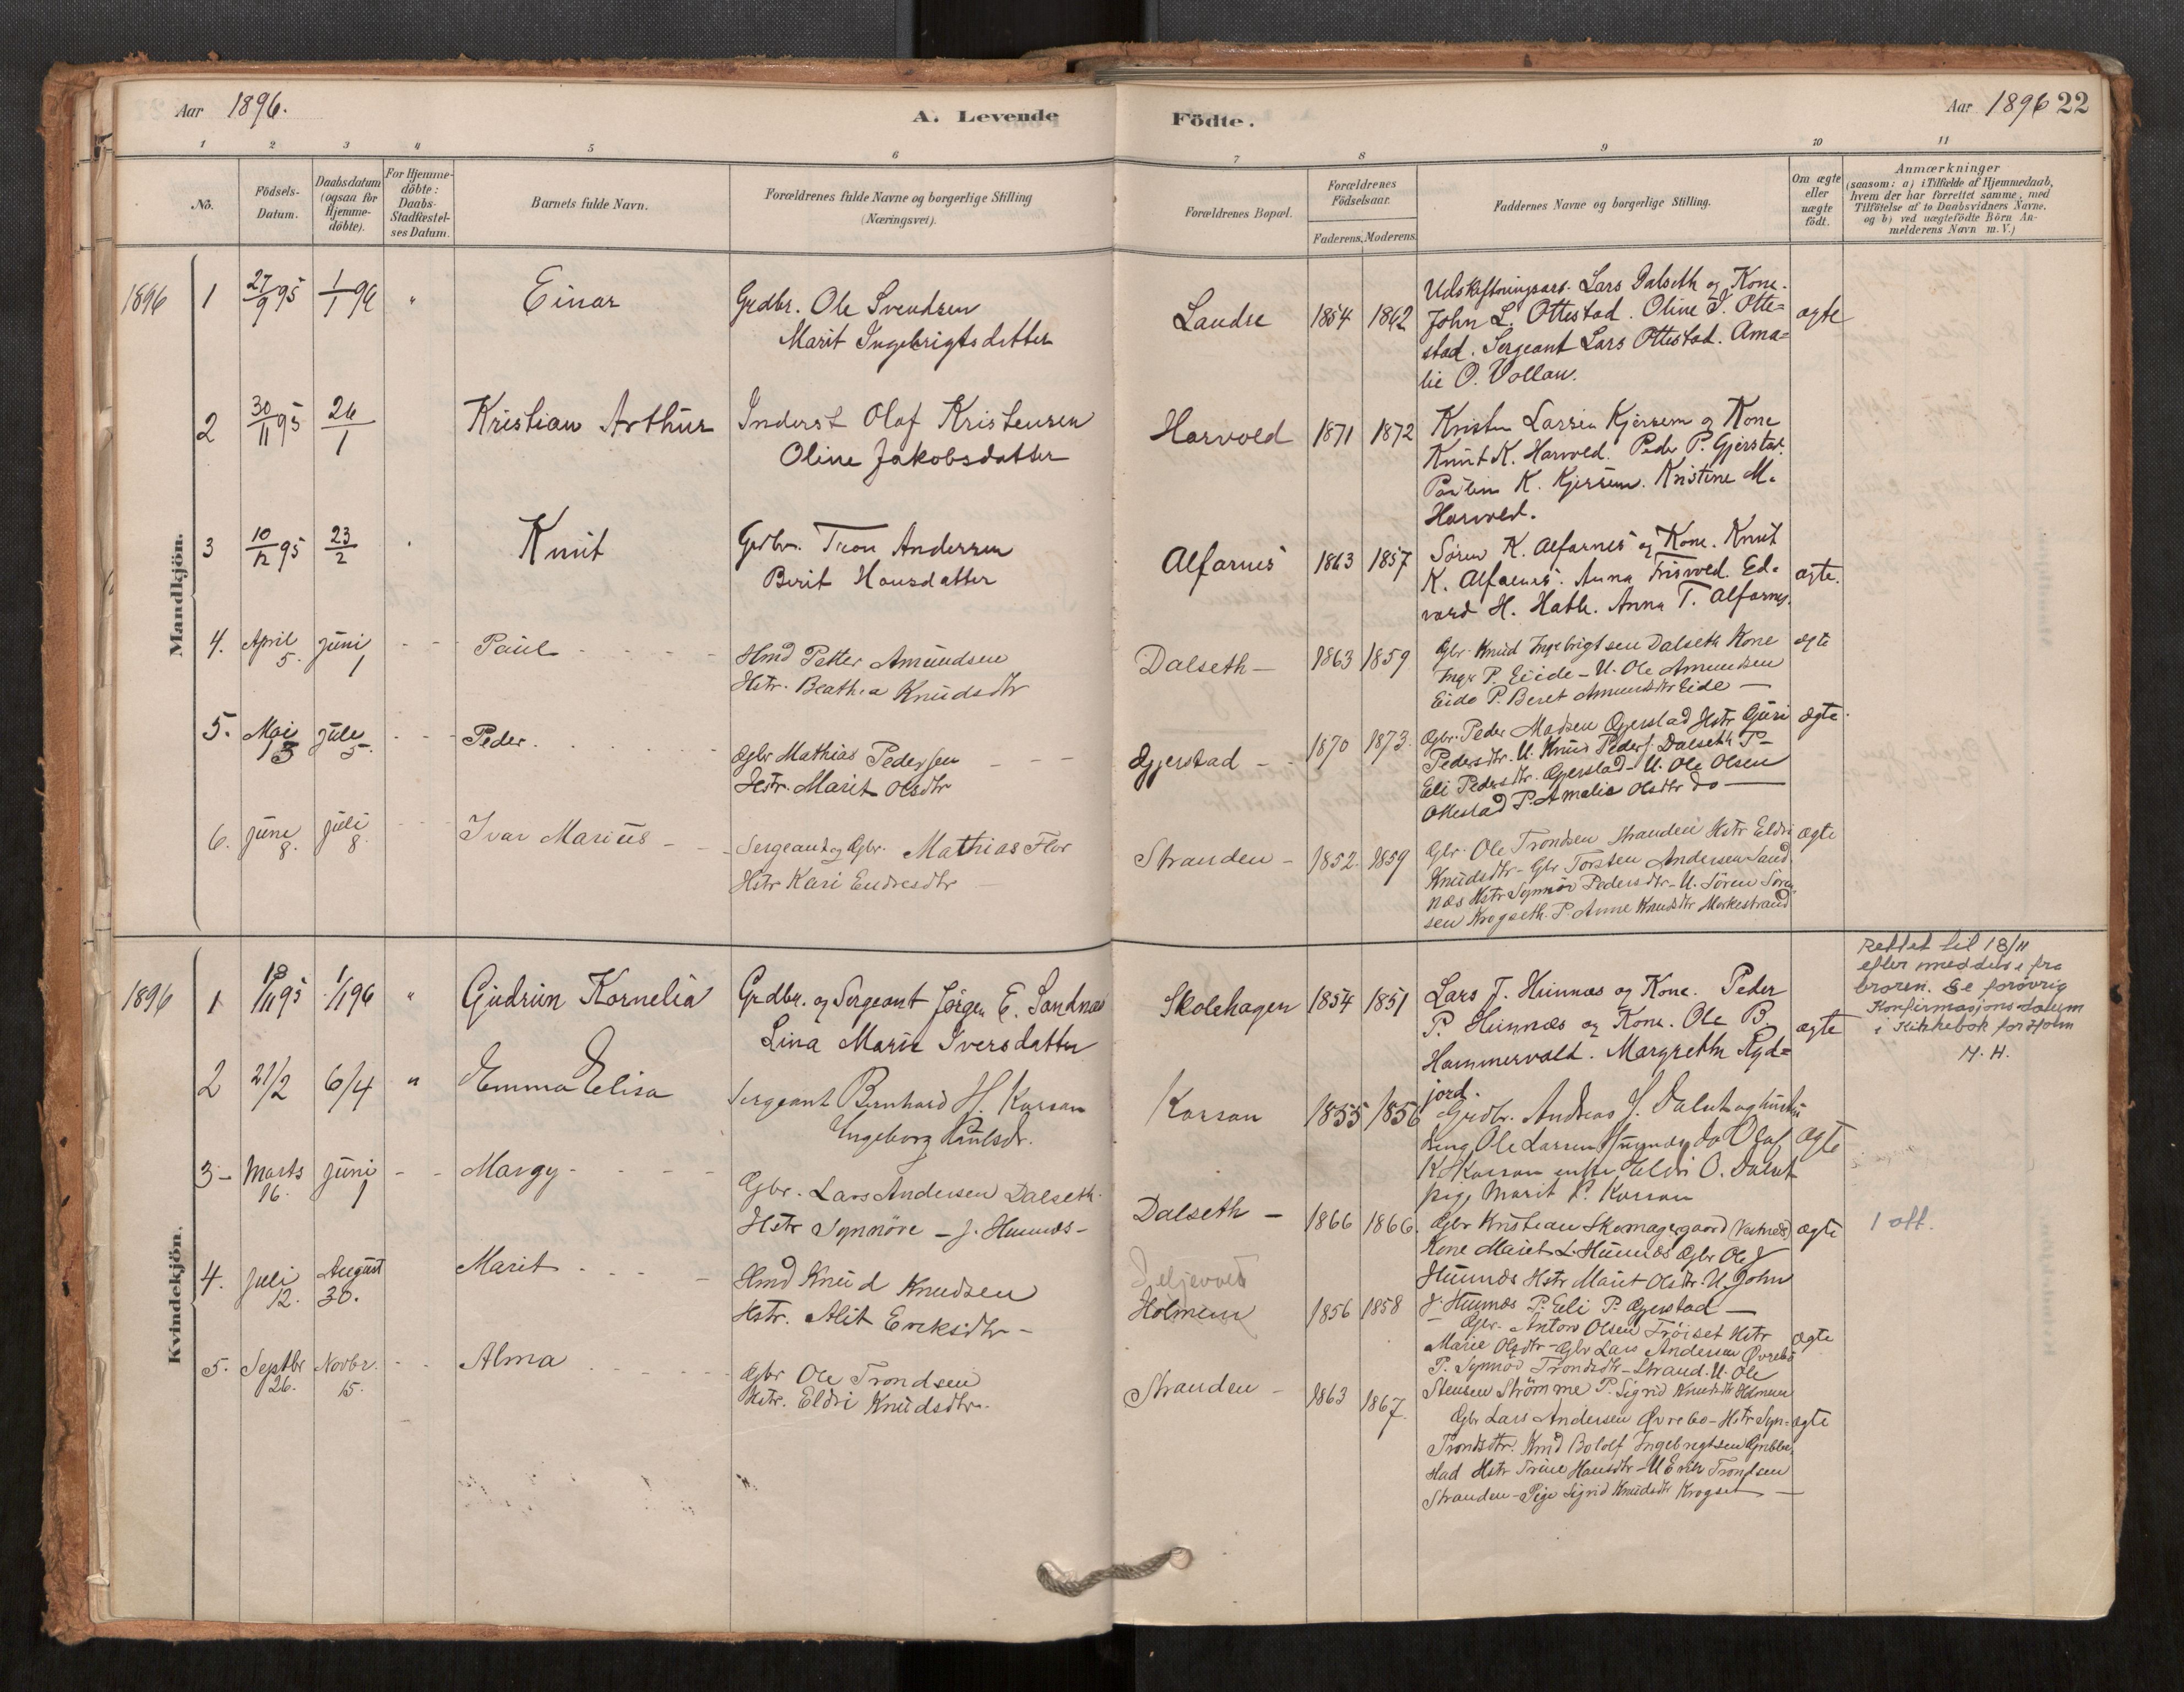 Aar 1896.
A. Levende
Födte.
Aar 1896 22
1 2 3 4 5 6 7 8 9 10 11
No.
Födsels-
Datum.
Daabsdatum
(ogsaa for
Hjemme-
döbte).
For Hjemme-
döbte:
Daabs-
Stadfæstel-
ses Datum.
Barnets fulde Navn.
Forældrenes fulde Navne og borgerlige Stilling
(Næringsvei).
Forældrenes Bopæl.
Forældrenes
Födselsaar.
Faderens. Moderens.
Faddernes Navne og borgerlige Stilling.
Om ægte
eller
uægte
födt.
Anmærkninger
(saasom: a) i Tilfælde af Hjemmedaab,
hvem der har forrettet samme, med
Tilföielse af to Daabsvidners Navne.
og b) ved uægtefödte Börn An-
melderens Navn m. V.)
Mandkjön.
1896 1 27/9 95 1/1 96 " Einar
Grdbr. Ole Svendsen
Marit Ingebrigtsdatter
Landre 1854 1862
Udskiftningsars. Lars Dalseth og Kone.
John L. Ottestad. Oline J. Otte=
stad. Sergeant Lars Ottestad. Ama=
lie O. Vollan.
ægte
2 30/11 95 26/1 Kristian Arthur
Inderst Olaf Kristensen
Oline Jakobsdatter
Harvold 1871 1872
Kristen Larsen Kjersem og Kone
Knut K. Harvold. Peder P. Gjerstad.
K. Kjersem. Kristine M.
Harvold.
3 10/12 95 23/2 Knut
Grdbr. Tron Andersen
Berit Hansdatter
Alfarnes 1863 1857
Sören K. Alfarnes og Kone. Knut
K. Alfarnes. Anna Frisvold. Ed-
vard H. Hatle. Anna T. Alfarnes.
ægte.
4. April 5. Juni 1 - - Paul - - - -
Hmd Petter Amundsen
Hstr. Beathea Knudsdtr
Dalseth - 1863 1859
Gbr. Knud Ingebrigtsen Dalseth Kone
Inger P. Eide - U. Ole Amundsen
Eide P. Beret Amundsdtr Eide -
ægte
5. Mai 3 Juli 5. - - Peder. - - -
Gbr Mathias Pedersen - - -
Hstr. Marit Olsdtr
Gjerstad - 1870 1873.
Gbr. Peder Madsen Gjerstad Hstr Guri
Pedersdtr. U. Knud Peders. Dalseth P-
Eli Pedersdtr. Gjerstad - U. Ole Olsen
Ottestad P. Amalia Olsdtr do -
ægte.
6. Juni 8. Juli 8. - - Ivar Marius - -
Sergeant og Gbr. Mathias Flor
Hstr Kari Endresdtr -
Stranden - 1852. 1859
Gbr. Ole Trondsen Stranden Hstr Eldri
Knudsdtr - Gbr Torsten Andersen Sand
nes Hstr Synnöv Pedersdtr - U. Sören Sörn
sen Krogseth. P. Anne Knudsdtr Morkestrand
ægte
Kvindekjön.
1896 1 18/11 95 1/1 96 " Gudrun Kornelia
Grdbr. og Sergeant Jörgen E. Sandnæs
Lina Marie Iversdatter
Skolehagen 1854 1851
Lars J. Hunnæs og Kone. Peder
P. Hunnæs og Kone. Ole B.
Hammervold. Margrethe Ryd=
jord.
ægte
Rettet til 18/11
efter meddelse fra
broren. Se forövrig
Konfirmasjonsdatum
i Kirkebok for Holm
H. H.
2 21/2 6/4 " Emma Elisa
Sergeant Bernhard H. Korsan
Ingeborg Paulsdr.
Korsan 1855 1856
Grdbr. Andreas J. Dalset og hustru
Ole Larsen do Olaf
K. Korsan enke Eldri O. Dalset
pige Marit P. Korsan
ægte
3 - Marts 16. Juni 1 - - Margy - - - -
Gbr. Lars Andersen Dalseth
Hstr Synnöve - J. Hunnæs -
Dalseth - 1866 1866.
Gbr Kristian Skomagergaard (Vestnæs)
Kone Marit L. Hunnæs Gbr Ole J
Hunnæs Hstr Marit Olsdtr. U. John
J. Hunnæs P. Eli P. Gjerstad -
ægte
1 att.
4. Juli 12. August 30. Marit - - - -
Hmd Knud Knudsen
Hstr. Alit Eriksdtr -
Holmem 1856 1858
Gbr. Anton Olsen Fröiset Hstr
Marie Olsdtr - Gbr Lars Andersen Övrebö
P. Synnöv Trondsdtr - Strand. U. Ole
Stensen Strömme P. Sigrid Knudsdtr Holmem
ægte
5. Septbr 26. Novbr. 15. - - Alma - - - -
Gbr Ole Trondsen
Hstr. Eldri Knudsdtr -
Stranden - 1863 1867.
Gbr Lars Andersen Övrebö - Hstr Syn-
Trondsdtr. Hmd Bololf Ingebrigtsen Gribbe
stad Hstr Trine Hansdtr - U Erik Trondsen
Stranden - Pige Sigrid Knudsdtr Krogset -
ægte